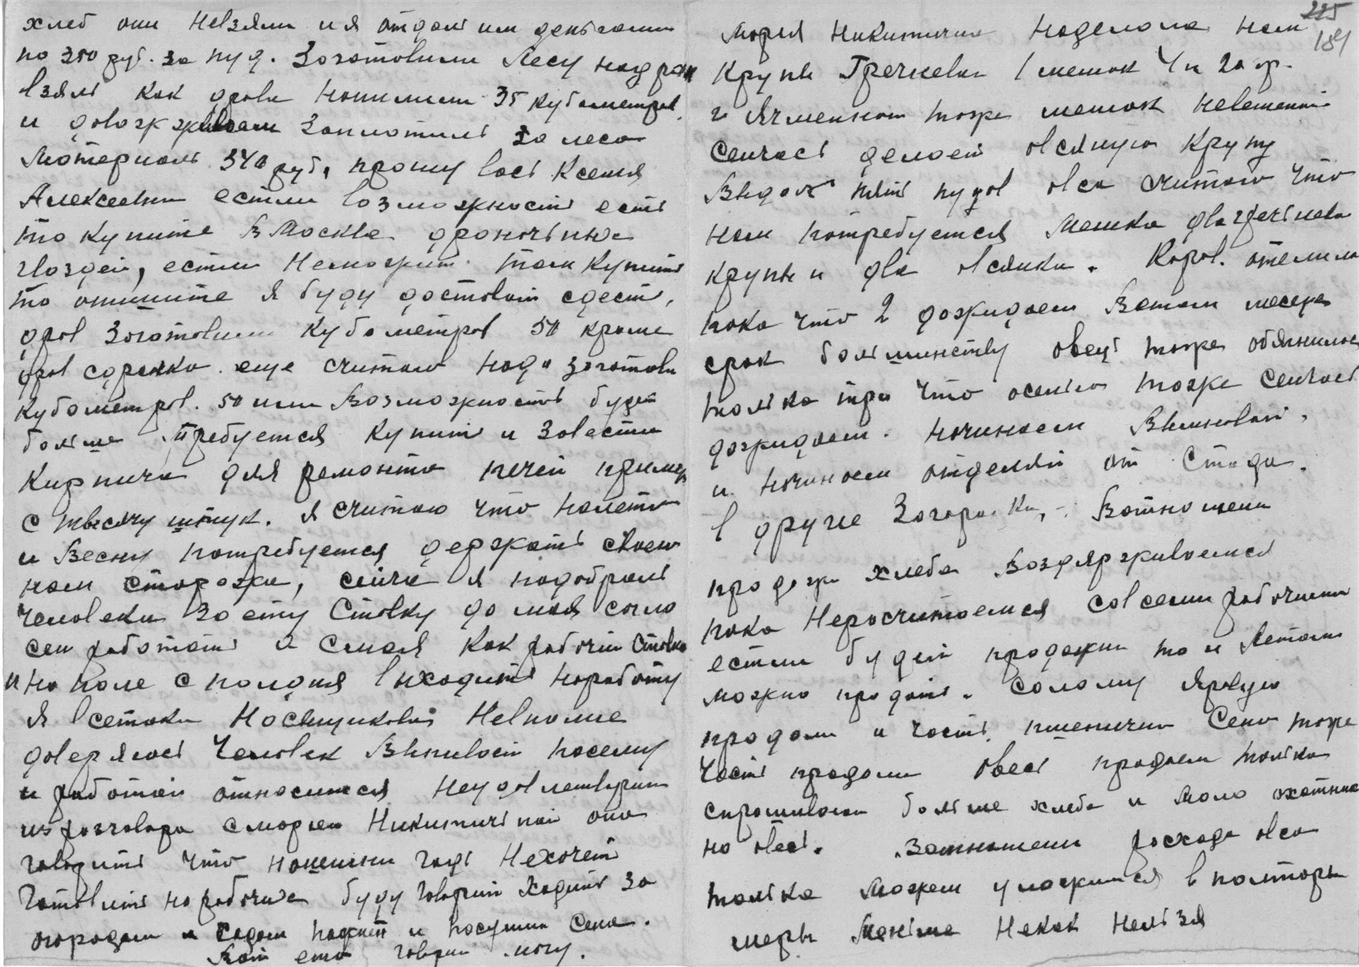 хлеб они невзяли и я отдал им деньгами
по 250 руб. за пуд. Заготовили Лесу
взяли как дрова напилили 35 кубометров
и довозжываем Заплотили за лесо
Мотериал 340 руб, прошу вас Ксения
Алексеевна естли возможность есть
то купите в Москве драночные
гвоздей, естли Неможите там купить
то отпишите я буду доставать сдесь,
дров Заготовили кубометров 50 кроме
дров сдранко. еще считаю надо заготовить
кубометров. 50 или Возможность будет
больше. Требуется купить и Завести
Кирпича для ремонта печей
с тысячу штук. Я считаю что налето
и Весну потребуется держать
нам сторожа, я подобрал
человека За ету Ставку до мая
работать а Как рабочий
и на поле с полдня выходить наработу
Я всетаки Невполне
доверялся Человек Выпивает посему
и работай относится Неудовлетворит
из розговора сморией Никитичной она
говорить что нонешни год Нехочет
готовить на рабочих буду говорит ходить За
огородом и садом и посушу Сена.
Вот ето говорит могу.
185
181
Мория Никитична наделала нам
Крупы Гречневы 1 мешок 4 п 20 ф.
и Ячменной тоже мешок невешеной
сейчас делает овсяную Крупу
Выдал пять пудов овса считаю что
нам потребуется Мешка два гречнева
крупы и два овсянки. Коров. отелило
пока что 2 дожидаем Ветом месеце
срок большинству овец тоже обягнилось
только три что осенью тоже сейчас
дожидаем. Ночинаем
и ночинаем отделять от Стада.
в другие Загородки, - Вотношени
продажи хлеба Воздяржываемся
пока Неросчитаемся совсеми рабочими
естли будет продажи то и Летом
можно продать. Солому Яровую
продали и часть пшеничной Сено тоже
часть продали Овес продаем только
спрошивают больше хлеба и мало охотнико
на овес. Вотношени росхода овса
только можем уложится в полторы
меры Меньше Некак Нельзя